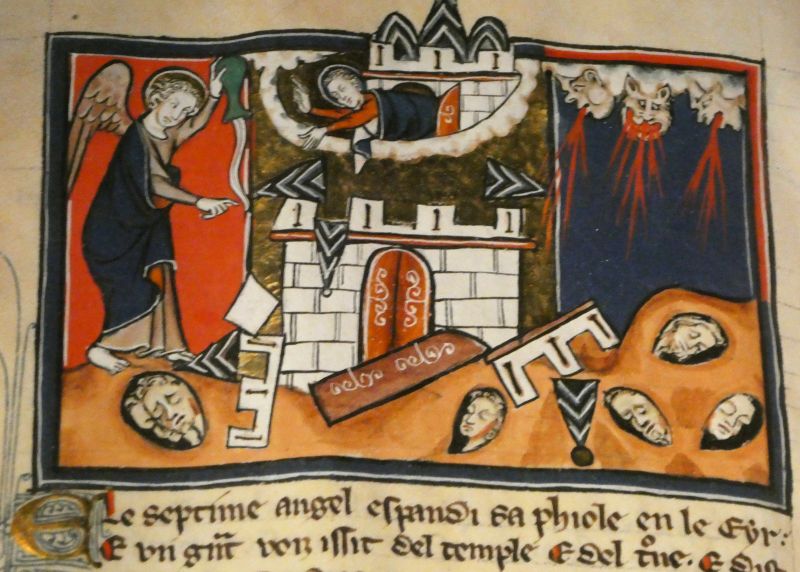 Le septime angel espandi sa phiole en le Eyr:
E vn gn̄t voiz issit del temple E del t̄ne. E dist